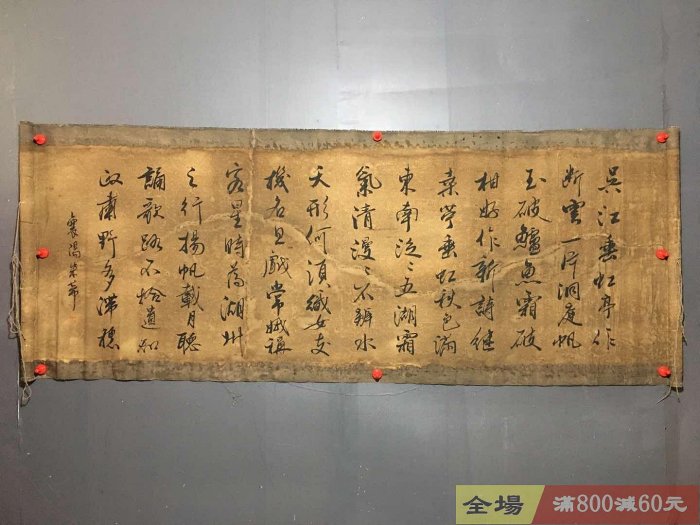 吳江垂虹亭作
断雲一片洞庭帆
玉破鱸魚霜破
柑好作新詩継
桑苧垂虹秋色滿
東南泛〻五湖霜
氣清漫〻不辨水
天形何須織女支
機石且戲常娥稱
客星時為湖州
之行揚帆載月聽
誦歌路不拾遺知
政肅野多滯穗
襄陽米芾
全場 滿800減60元